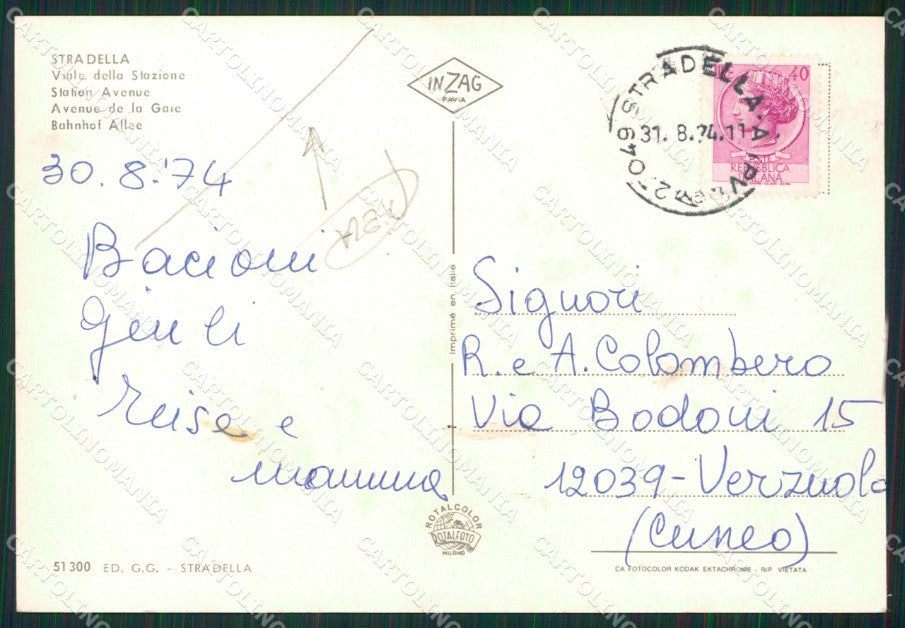 STRADELLA
Viale della Stazione
Station Avenue
Avenue de la Gare
Bahnhof Allee
30.8.74
Bacioni
Giuli
e
mamma
INZAG
PAVIA
Imprimé en Italie
ROTALCOLOR
ROTALFOTO
MILANO
STRADELLA
31. 8.74.11
27049
40
POSTE
REPUBBLICA
ITALIANA
Signori
R. e A. Colombero
Via Bodoni 15
12039-Verzuolo
(Cuneo)
51300 ED. G.G. - STRADELLA
CA FOTOCOLOR KODAK EKTACHROME - RIP VIETATA
CARTOLINOMANIA